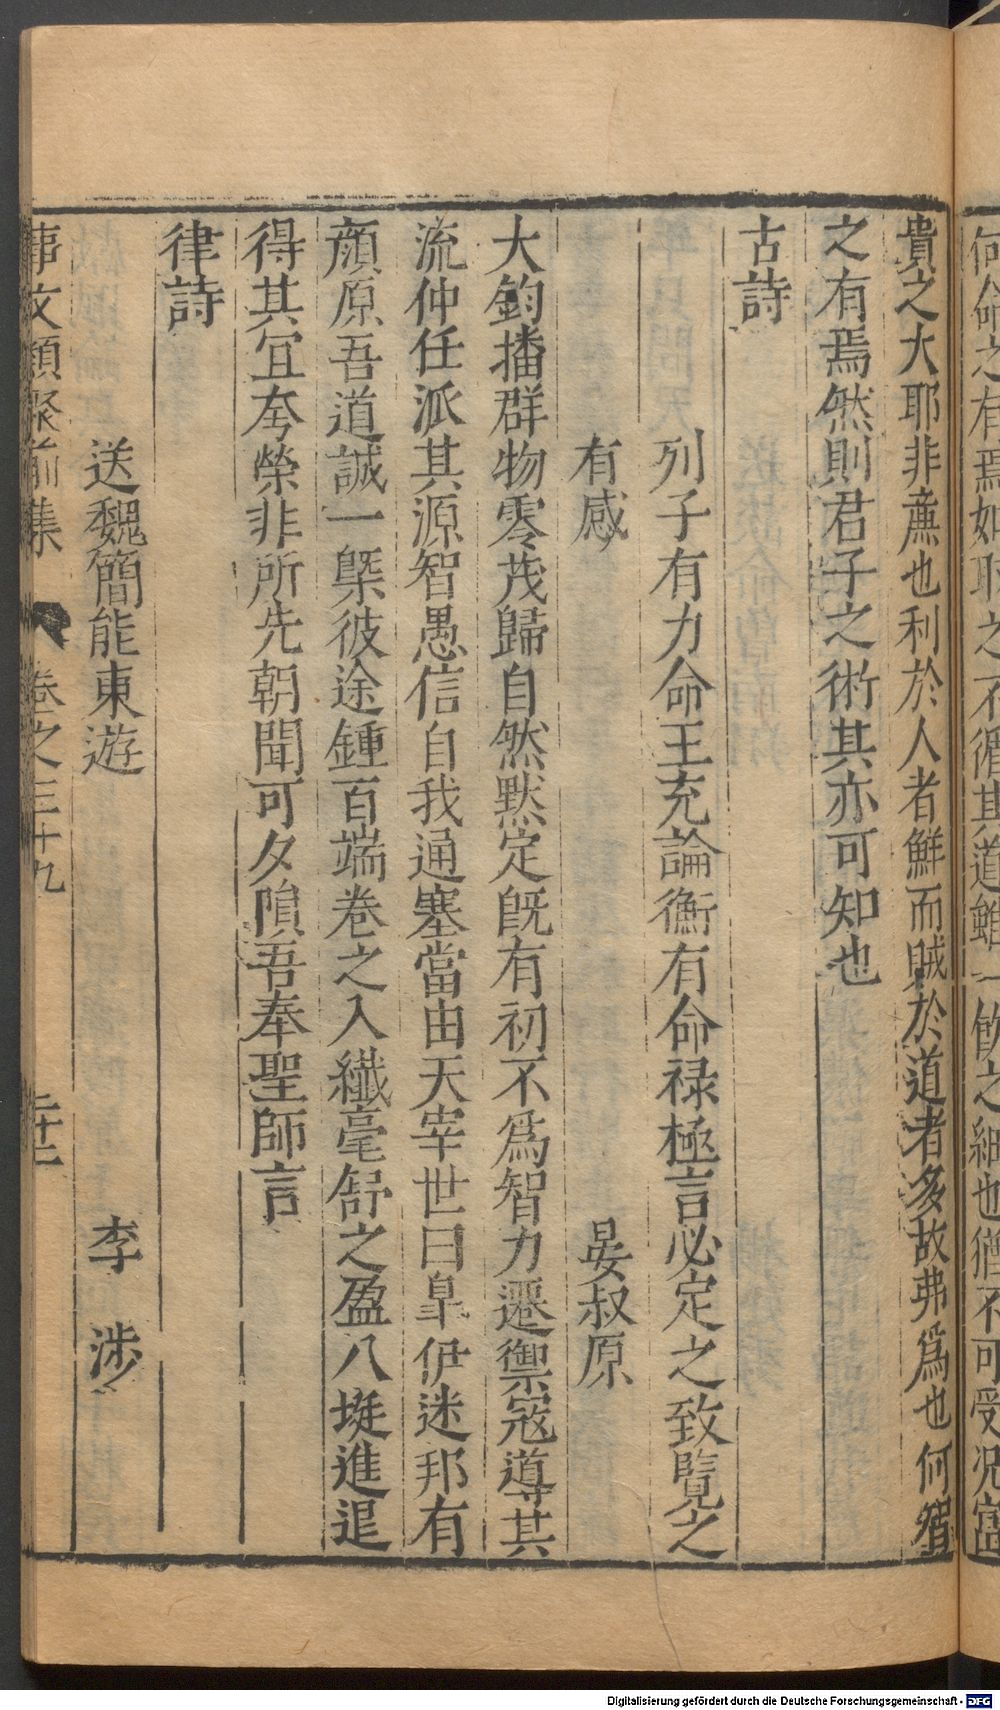 何命之有焉如取之不循其道雖一飮之細也猶不可受况富
貴之大耶非薦也利於人者鮮而賊於道者多故弗爲也何
之有焉然則君子之術其亦可知也
古詩
列子有力命王充論衡有命禄極言必定之致覽之
有感 晏叔原
大鈞播群物零茂歸自然默定旣有初不爲智力遷禦冦導其
流仲任派其源智愚信自我通塞當由天宰世曰臯伊迷邦有
顔原吾道誠一槩彼途鍾百端卷之入纖毫舒之盈八埏進退
得其冝夸榮非所先朝聞可夕隕吾奉聖師言
律詩
送魏簡能東遊 李 涉
事文類聚前集 卷之三十九 二十二
Digitalisierung gefördert durch die Deutsche Forschungsgemeinschaft - DFG